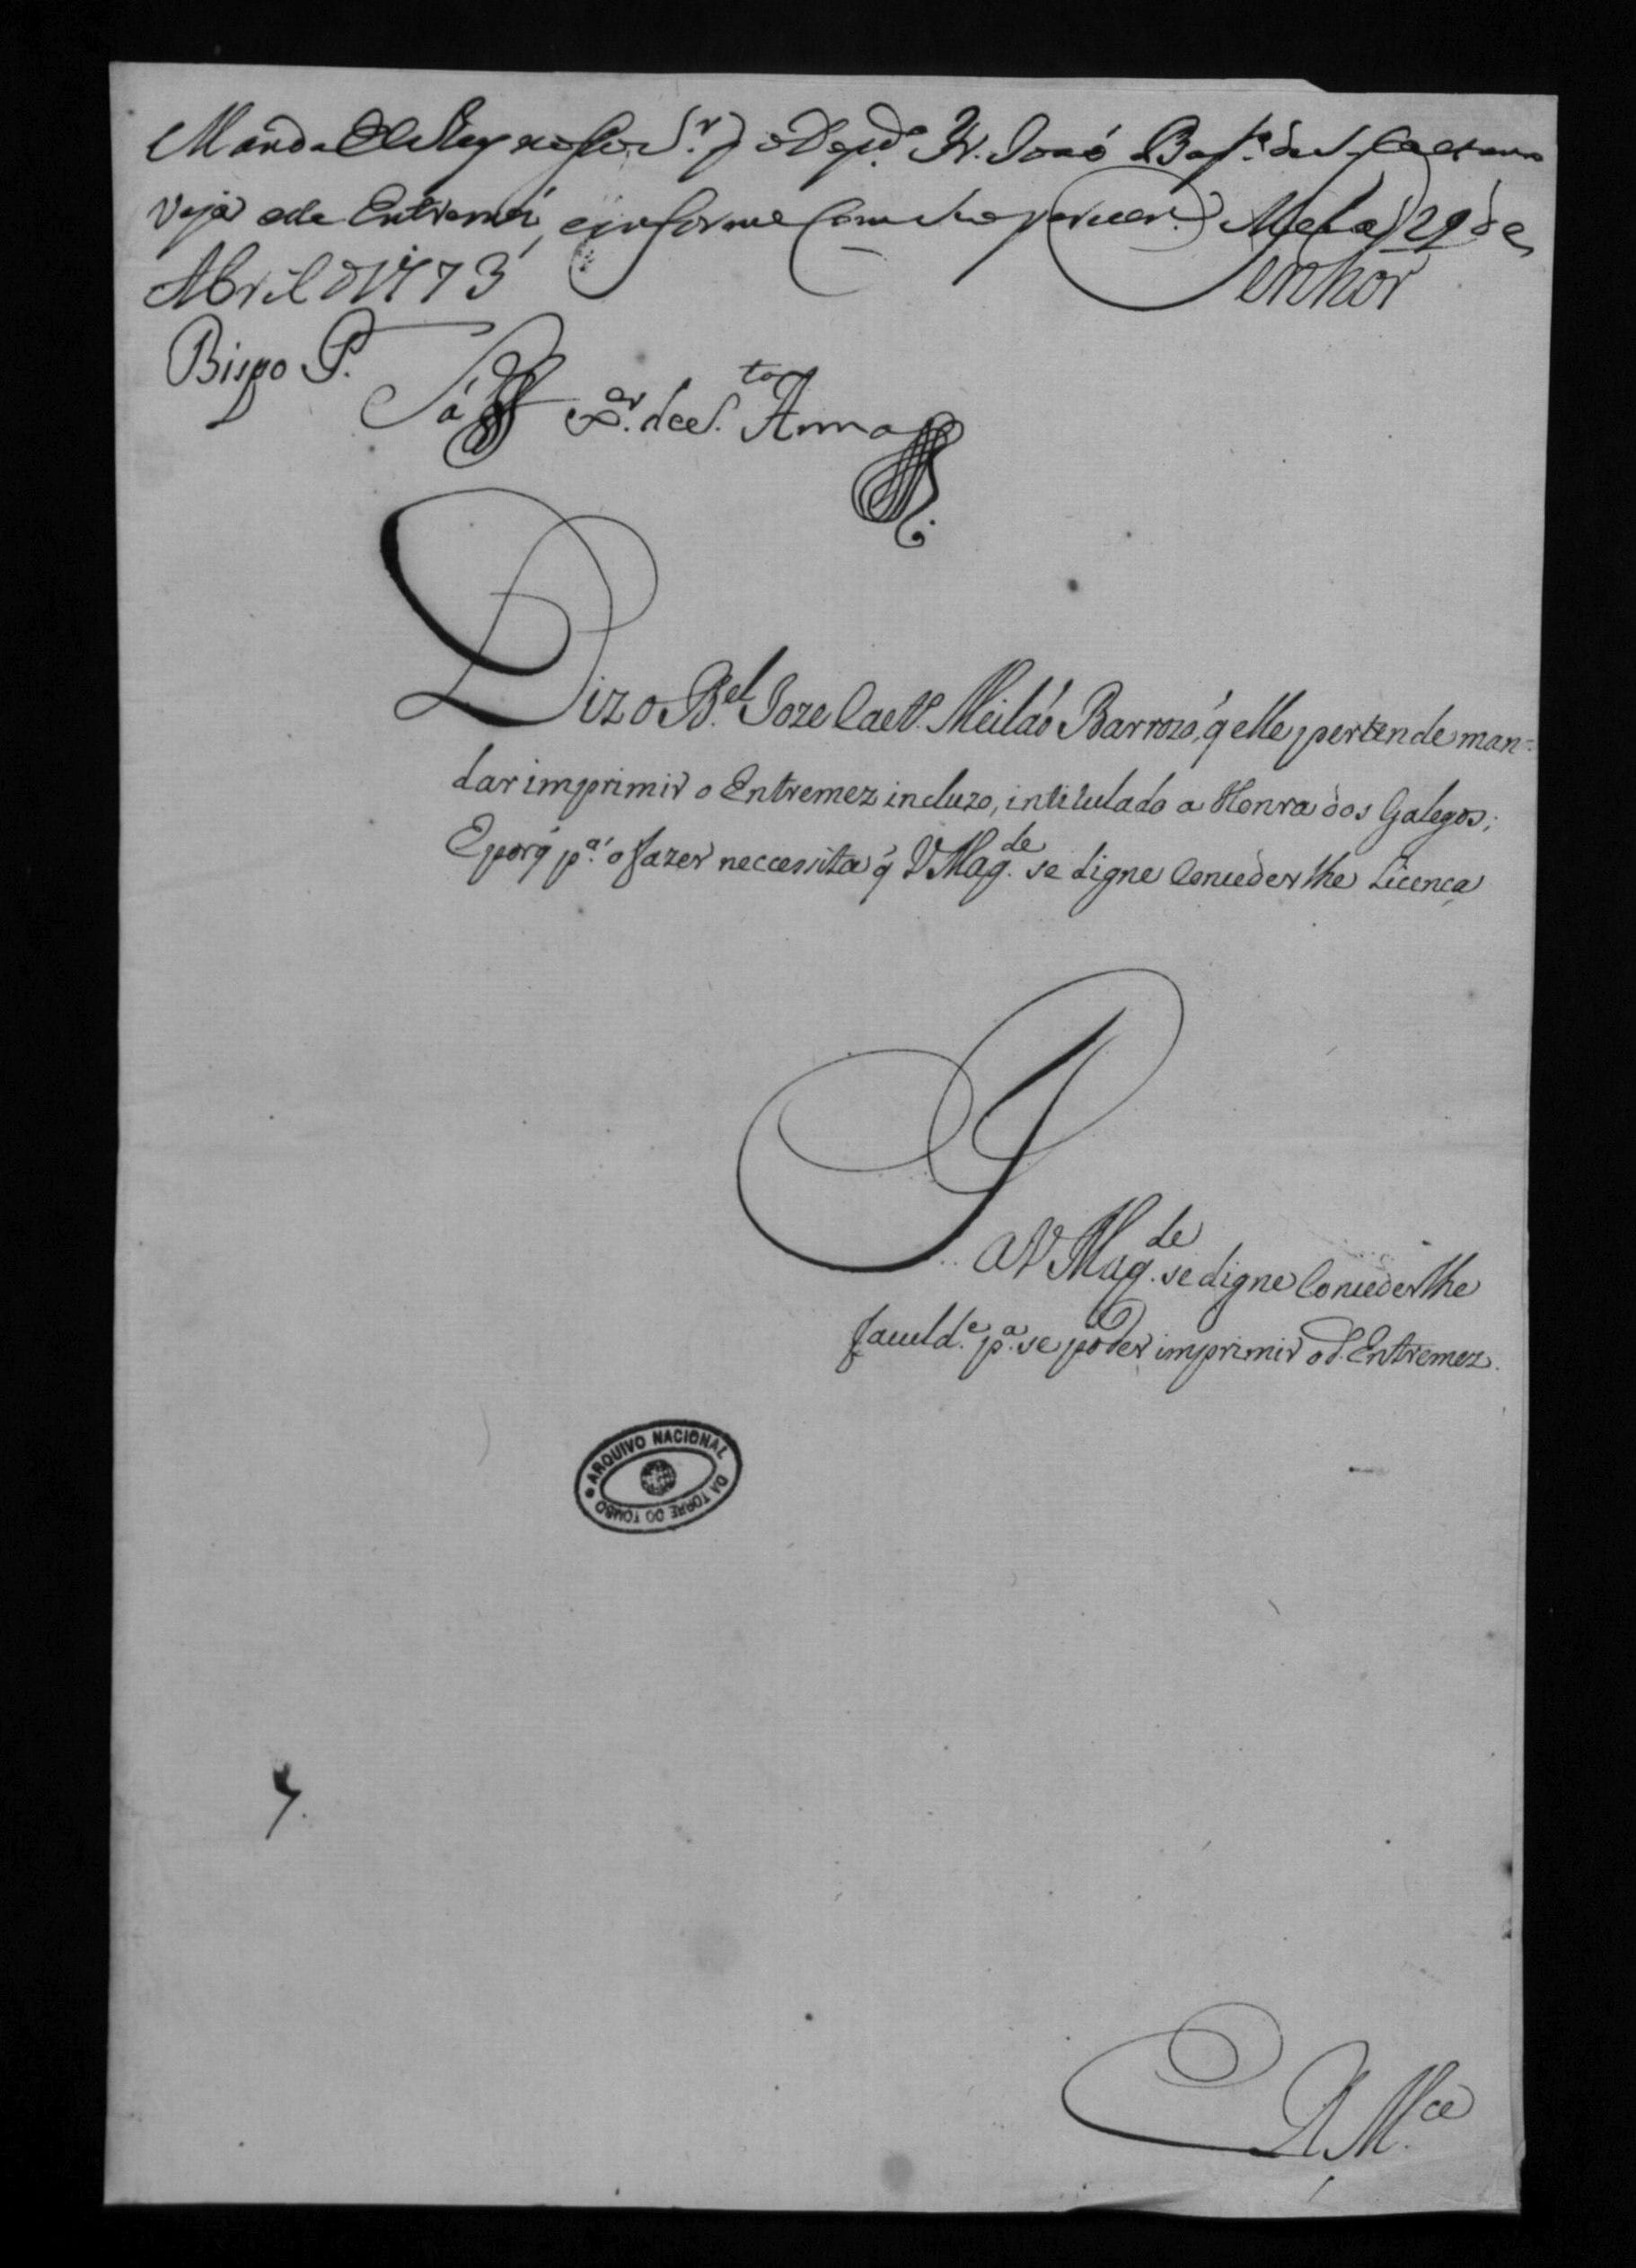 Manda ElRey nosso S.r q o Dep.do Fr. João Bap.ta de S. Caetano
veja este Entremez, e informe com seu parecer. Meza 29 de
Abril d 1773
Senhor
Bispo P.
Sá
X.er de S.ta Anna
Diz o B.el Joze Caet.o Meilaó Barrozo, q̃ elle pertende man=
dar imprimir o Entremez incluzo, intitulado a Honra dos Galegos;
E porq̃ p.a o fazer neccessita q̃ V Mag.de se digne Concederlhe Licença
P.
A V Mag.de se digne Concederlhe
faculd.e p.a se poder imprimir o d. Entremez.
ARQUIVO NACIONAL DA TORRE DO TOMBO
E R M.ce